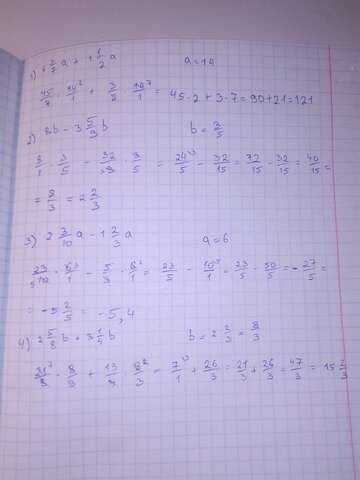 1) 6 3/7 a + 1 1/2 a    a = 14
45/7 · 14²/1 + 3/2 · 14⁷/1 = 45·2 + 3·7 = 90+21 = 121
2) 8b - 3 5/9 b    b = 3/5
8/1 · 3/5 - 32/9 · 3/5 = 24³/5 - 32/15 = 72/15 - 32/15 = 40/15 =
= 8/3 = 2 2/3
3) 2 3/10 a - 1 2/3 a    a = 6
23/10 · 6³/1 - 5/3 · 6²/1 = 23/5 - 10/1 = 23/5 - 50/5 = - 27/5 =
= - 5 2/5 = - 5,4
4) 2 5/8 b + 3 1/5 b    b = 2 2/3 = 8/3
21/8 · 8/3 + 13/ · 8²/3 = 7³/1 + 26/3 = 21/3 + 26/3 = 47/3 = 15 2/3